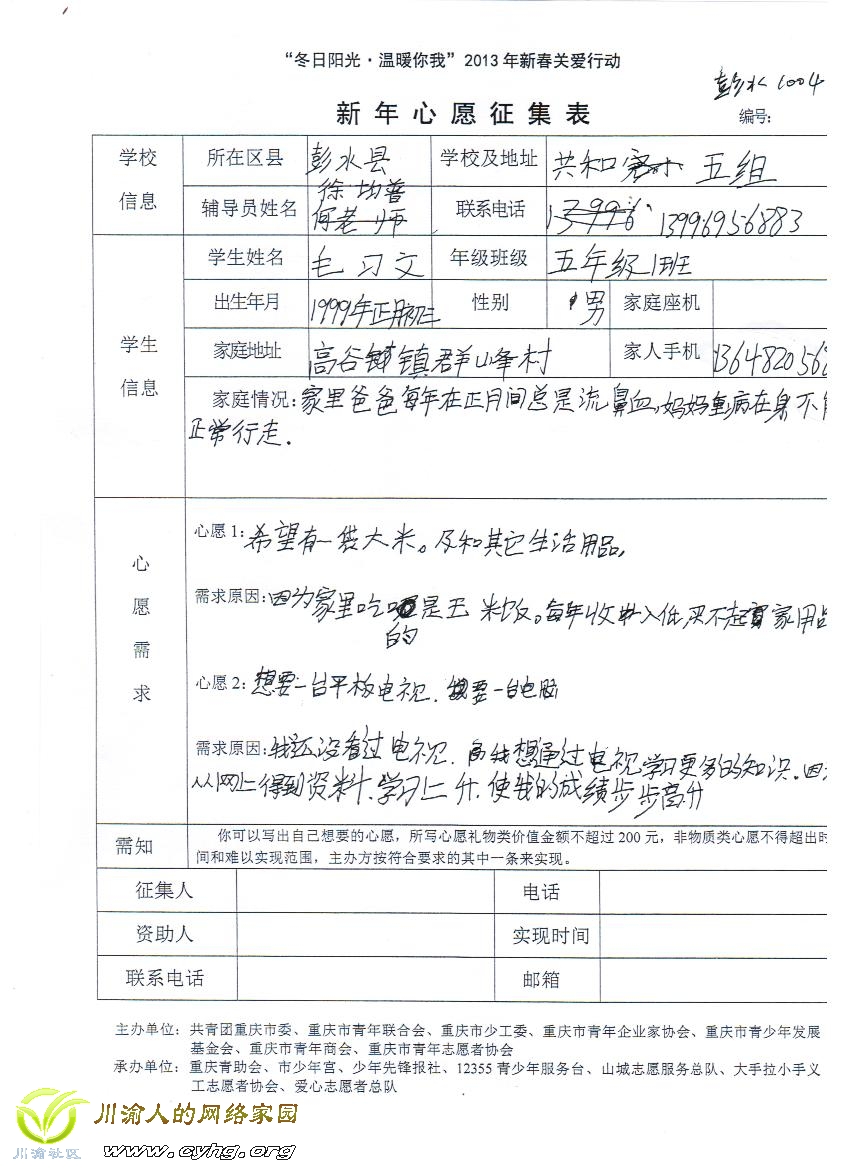 “冬日阳光·温暖你我”2013年新春关爱行动
彭水1004
新年心愿征集表
编号:
学校信息
所在区县 彭水县 学校及地址 共和完小 五组
徐均普
辅导员姓名 何老师 联系电话 13996 13996956883
学生信息
学生姓名 毛习文 年级班级 五年级1班
出生年月 1999年正月初三 性别 男 家庭座机
家庭地址 高谷镇群峰村 家人手机 136482056
家庭情况:家里爸爸每年在正月间总是流鼻血,妈妈重病在身不
正常行走.
心愿需求
心愿1:希望有一袋大米。及和其它生活用品,
需求原因:因为家里吃的是玉米饭。每年收入低,买不起家用品
心愿2:想要一台平板电视.我要一台电脑
需求原因:我还没看过电视.我想通过电视学习更多的知识.因
从网上得到资料、学习上升,使我的成绩步步高升
需知 你可以写出自己想要的心愿,所写心愿礼物类价值金额不超过200元,非物质类心愿不得超出时
间和难以实现范围,主办方按符合要求的其中一条来实现。
征集人 电话
资助人 实现时间
联系电话 邮箱
主办单位:共青团重庆市委、重庆市青年联合会、重庆市少工委、重庆市青年企业家协会、重庆市青少年发展
基金会、重庆市青年商会、重庆市青年志愿者协会
承办单位:重庆青助会、市少年宫、少年先锋报社、12355青少年服务台、山城志愿服务总队、大手拉小手义
工志愿者协会、爱心志愿者总队
川渝人的网络家园
川渝社区 www.cyhg.org